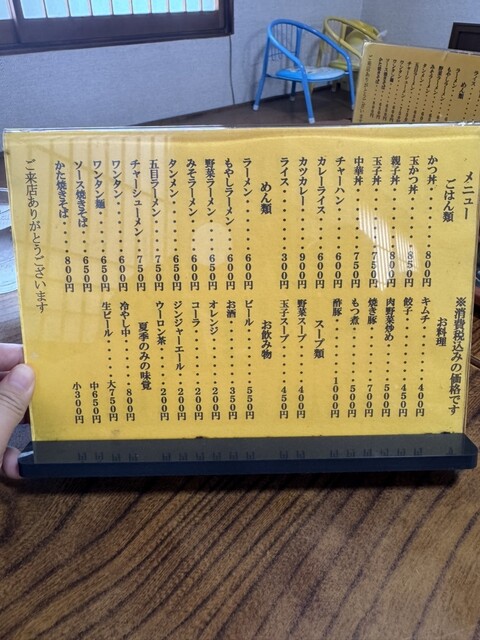 メニュー
ごはん類
かつ丼・・・・・800円
玉かつ丼・・・・800円
親子丼・・・・・800円
玉子丼・・・・・750円
中華丼・・・・・750円
チャーハン・・・600円
カレーライス・・600円
カツカレー・・・900円
ライス・・・・・300円
めん類
ラーメン・・・・600円
もやしラーメン・・600円
野菜ラーメン・・650円
みそラーメン・・600円
タンメン・・・・650円
五目ラーメン・・750円
チャーシューメン・750円
ワンタン・・・・600円
ワンタン麺・・・650円
ソース焼きそば・・650円
かた焼きそば・・・800円
ご来店ありがとうございます
※消費税込みの価格です
お料理
キムチ・・・・・400円
餃子・・・・・・450円
肉野菜炒め・・・500円
焼き豚・・・・・700円
もつ煮・・・・・500円
酢豚・・・・・1000円
スープ類
野菜スープ・・・400円
玉子スープ・・・450円
お飲み物
ビール・・・・・550円
お酒・・・・・・350円
オレンジ・・・・200円
コーラ・・・・・200円
ジンジャーエール・・200円
ウーロン茶・・・200円
夏季のみの味覚
冷やし中・・・・800円
生ビール・・・・大750円
中650円
小300円